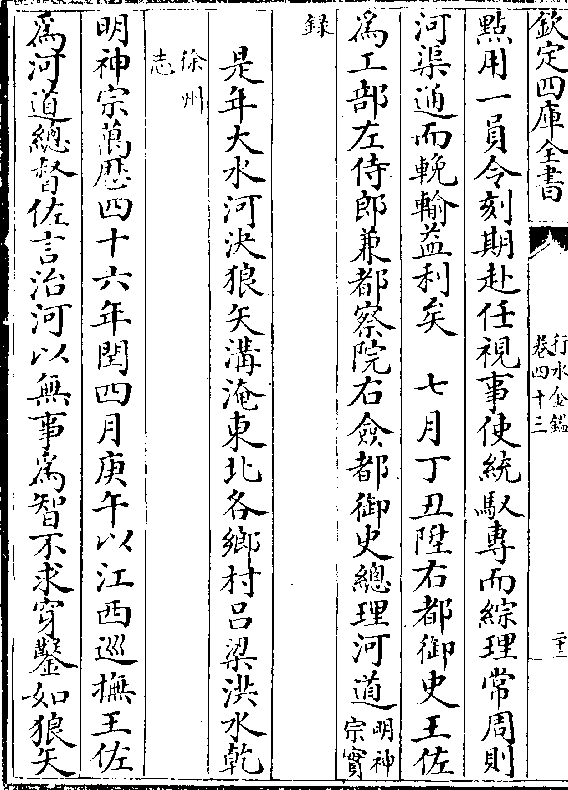 欽定四庫全書
行水金鑑
卷四十三
點用一員令刻期赴任視事使統馭專而綜理常周則
河渠通而輓輸益利矣　七月丁丑陞右都御史王佐
爲工部左侍郎兼都察院右僉都御史總理河道明神宗實
録
是年大水河決狼矢溝淹東北各鄉村吕梁洪水乾
徐州志
明神宗萬厯四十六年閏四月庚午以江西巡撫王佐
爲河道總督佐言治河以無事爲智不求穿鑿如狼矢